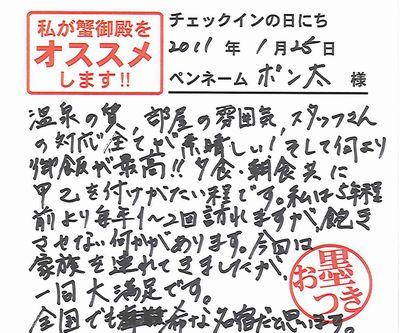 私が蟹御殿を
オススメ
します!!
チェックインの日にち
2011年1月25日
ペンネーム ポン太 様
温泉の質、部屋の雰囲気、スタッフさん
の対応全てが素晴しい!そして何より
御飯が最高!!夕食・朝食共に
甲乙を付けがたい程です。私は5年程
前より毎年1〜2回訪れますが、飽き
させない何かがあります。今回は
家族を連れてきましたが、
一同大満足です。
全国でも希な名宿だと思います
お墨つき